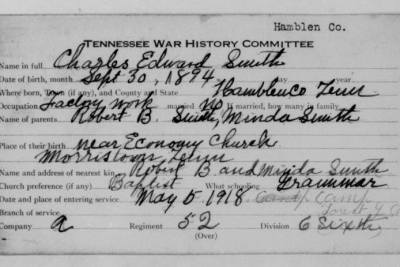 Hamblen Co.
TENNESSEE WAR HISTORY COMMITTEE
Name in full Charles Edward Smith
Date of birth, month Sept 30, 1894 day year
Where born, Town (if any), and County Hamblen Co Tenn
Occupation Factory work married No If married, how many in family
Name of parents Robert B. Smith, Minda Smith
Place of their birth near Economy Church
Morristown Tenn
Name and address of nearest kin Robert B and Minda Smith
Church preference (if any) Baptist What schooling Grammar
Date and place of entering service May 5, 1918 Camp
Branch of service
Company A Regiment 52 Division 6 Sixth
(Over)